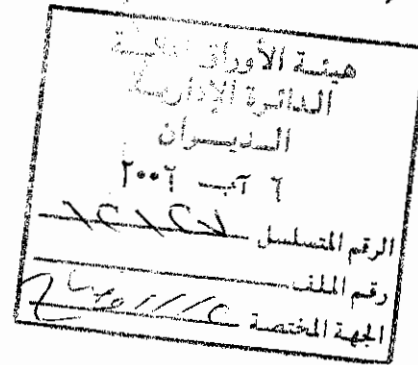 هيئة الأوراق المالية
الدائرة الإدارية
الديوان
٦ آب ٢٠٠٦
الرقم المتسلسل
رقم الملف
الجهة المختصة